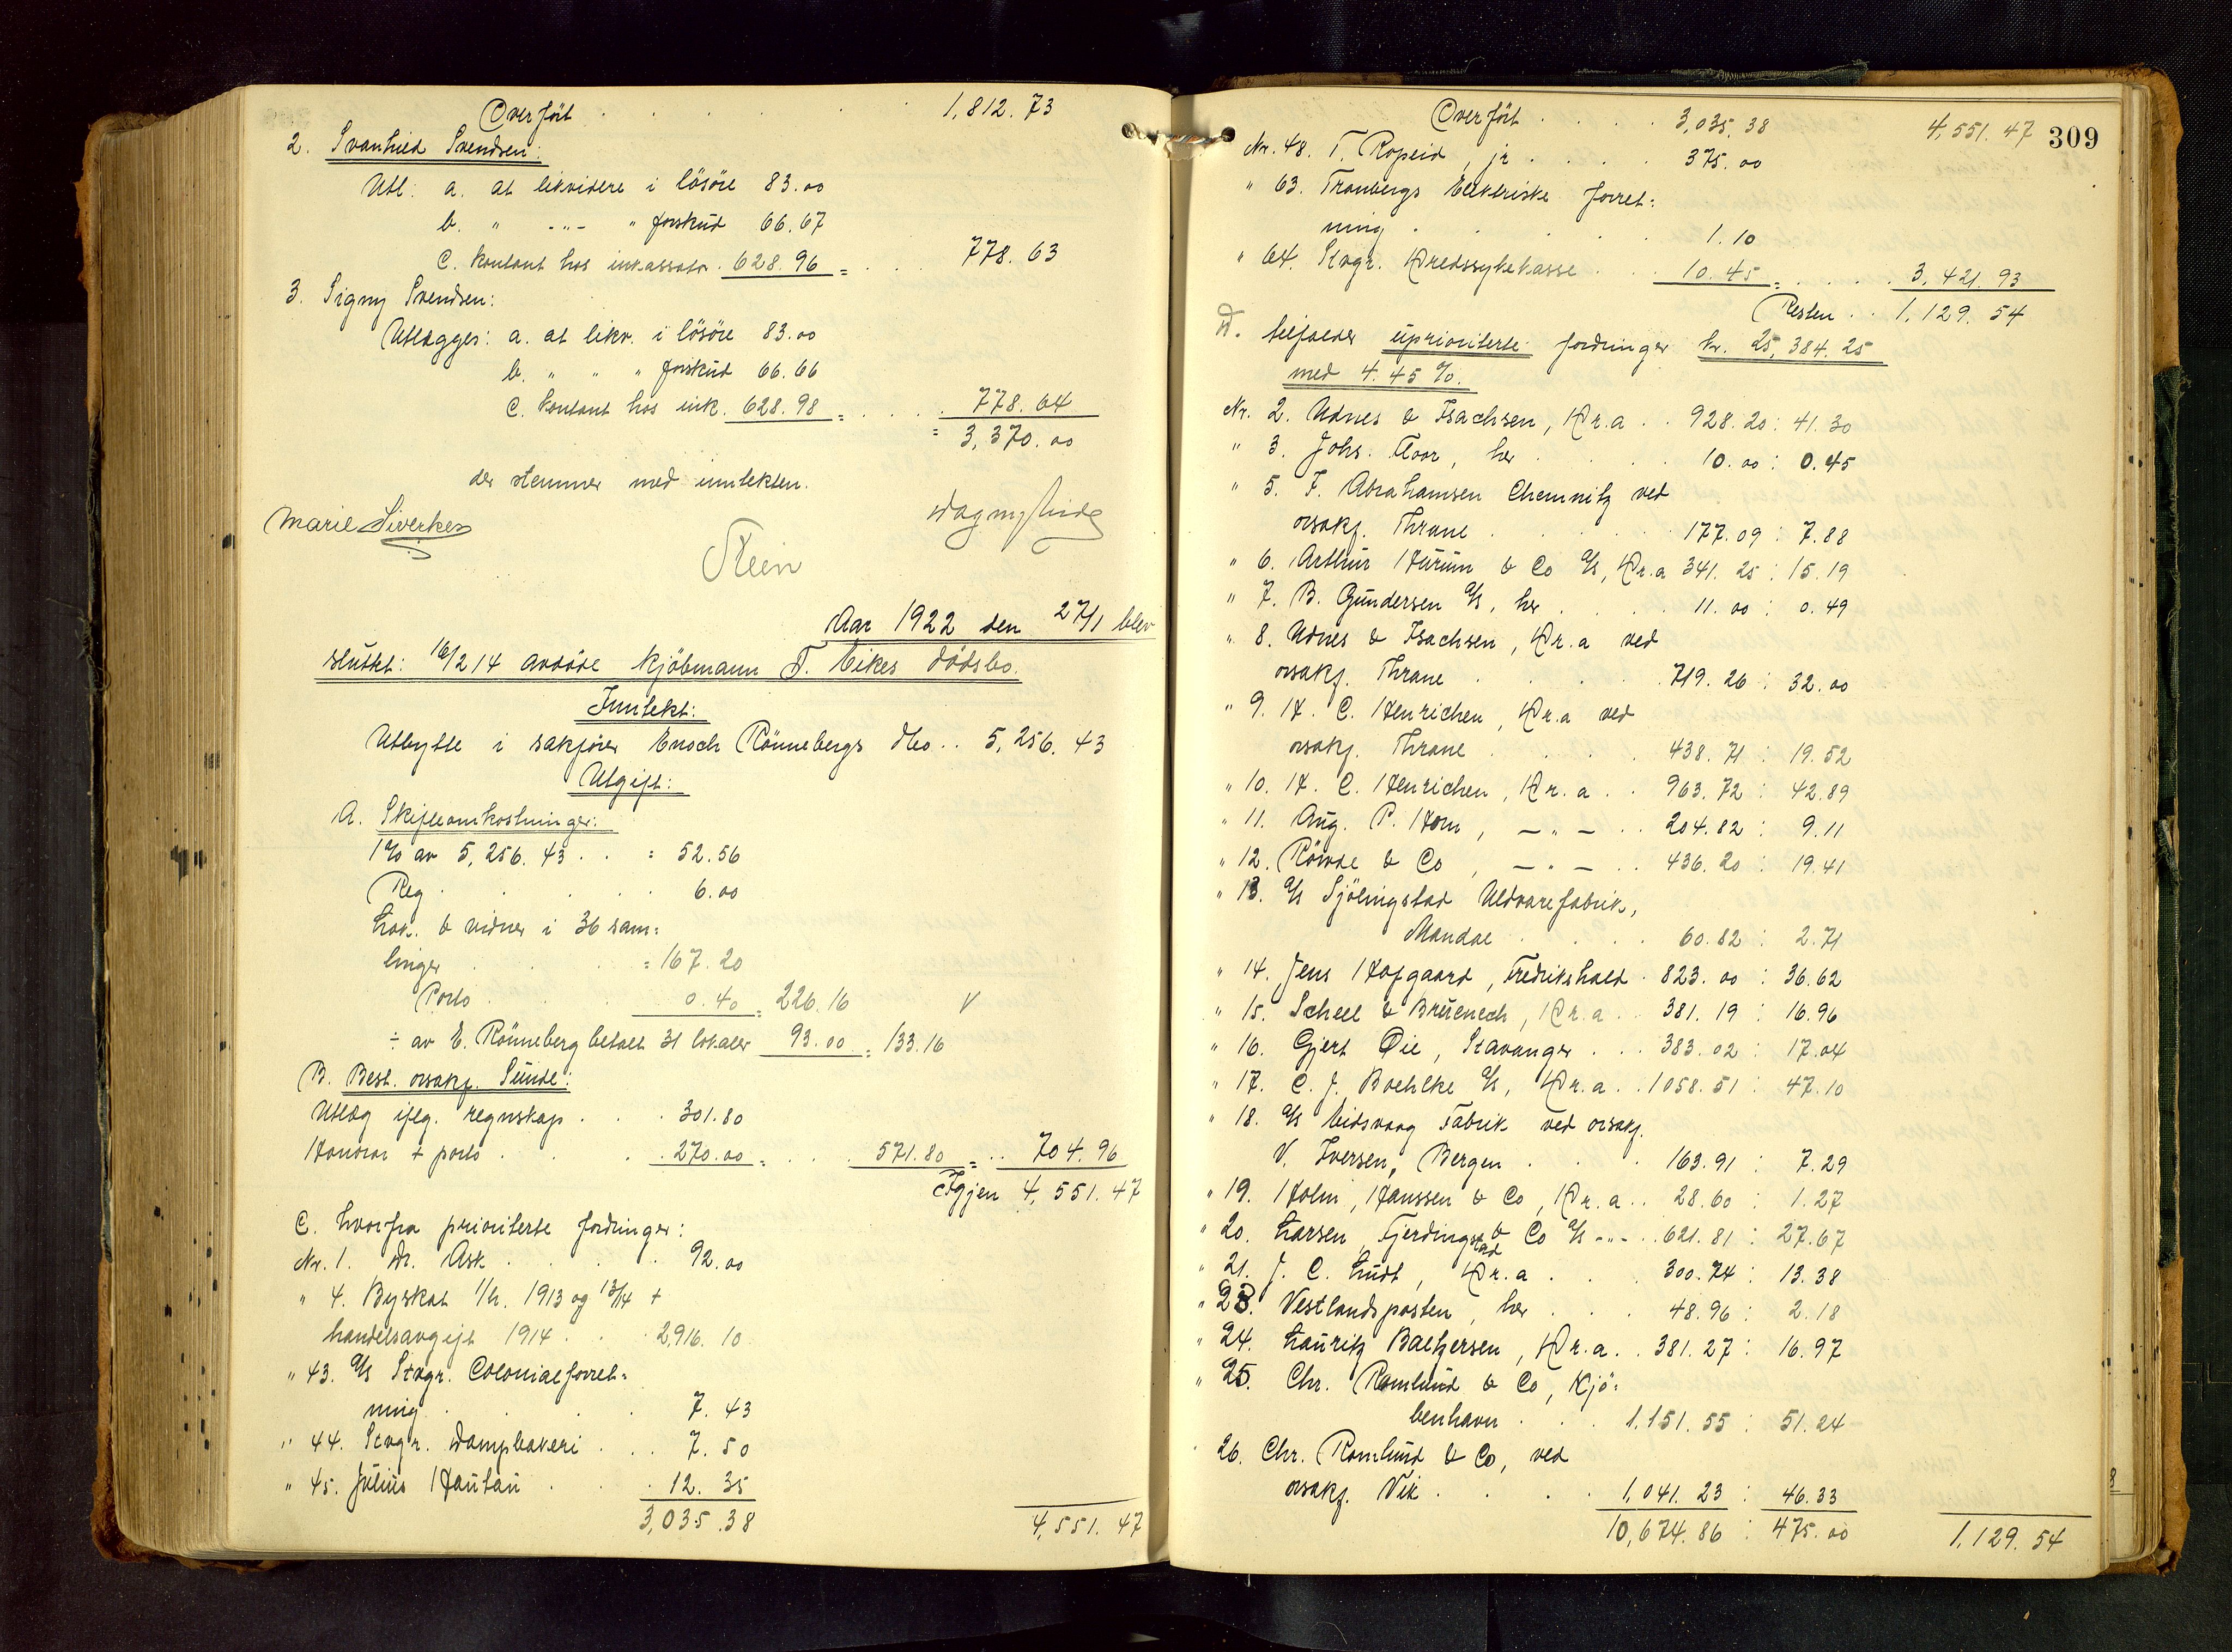 Overført . . . . . 1,812.73
2. Svanhild Svendsen:
Utl: a. at likvidere i lösöre 83.00
b. " -"- " forskud 66.67
c. kontant hos inkassator. 628.96 = . . . 778.63
3. Signy Svendsen:
Utlægges: a. at likv. i lösöre 83.00
b. " " " forskud 66.66
c. kontant hos ink. 628.98 = . . . . 778.64
= 3,370.00
der stemmer med inntekten.
Marie Siverkes
Dagny
Stein
Aar 1922 den 27/1 blev
sluttet: 16/2 14 avdöde kjöbmann T. Eikes dödsbo.
Inntekt:
Utbytte i sakförer Enoch Rönnebergs dbo . . 5,256.43
Utgift:
A. Skifteomkostninger:
1% av 5,256.43 . . = 52.56
Reg . . . . . 6.00
Lok. & vidner i 36 sam=
linger . . . . = 167.20
Porto . . . 0.40 = 226.16 V
÷ av E. Rönneberg betalt 31 lokaler 93.00 = 133.16
B. Best. orsakf. Sunde:
Utlæg iflg. regnskap . . . 301.80
Honorar + porto . . . . 270.00 = . . . 571.80 = . . 704.96
Igjen 4,551.47
C. hvorfra prioriterte fordringer:
Nr. 1. Dr. Ask . . . . 92.00
" 4. Byskat 1/h. 1913 og 13/14 +
handelsavgift 1914 . . . 2,916.10
" 43. A/S Stvgr. Colonialforret=
ning . . . . 7.43
" 44. Stvgr. Dampbakeri . . . 7.50
" 45. Julius Hautau . . . . 12.35
3,035.38 4,551.47
Overført . . . . 3,035.38 4,551.47 309
Nr. 48. T. Ropeid, jr . . . . 375.00
" 63. Tranbergs Elektriske forret=
ning . . . . 1.10
" 64. Stvgr. Kredssykekasse . . . 10.45 = . . . . 3,421.93
Resten . . 1,129.54
D. tilfalder uprioriterte fordringer kr. 25,384.25
med 4.45%.
Nr. 2. Udnes & Isachsen, Kr.a . . 928.20 : 41.30
" 3. Johs. Floor, her . . . . 10.00 : 0.45
" 5. F. Abrahamsen Chemnitz ved
orsakf. Thrane . . . . 177.09 : 7.88
" 6. Arthur Hurum & Co A/S, Kr.a 341.25 : 15.19
" 7. B. Gundersen A/S, her . . . . 11.00 : 0.49
" 8. Udnes & Isachsen, Kr.a ved
orsakf. Thrane . . . . 719.26 : 32.00
" 9. H. C. Henrichen, Kr.a ved
orsakf. Thrane . . . . 438.71 : 19.52
" 10. H. C. Henrichen, Kr.a . . 963.72 : 42.89
" 11. Aug. P. Horn, — " — . . 204.82 : 9.11
" 12. Röwde & Co, — " — . . 436.20 : 19.41
" 13. A/S Sjölingstad Uldvarefabrik,
Mandal . . . . 60.82 : 2.71
" 14. Jens Hofgaard, Fredrikshald . 823.00 : 36.62
" 15. Scheel & Bruenech, Kr.a . . 381.19 : 16.96
" 16. Gjert Øie, Stavanger . . . 383.02 : 17.04
" 17. C. J. Boehlke A/S, Kr.a . . 1058.51 : 47.10
" 18. A/S Eidsvaag Fabrik ved orsakf.
V. Iversen, Bergen . . . . 163.91 : 7.29
" 19. Holm, Hanssen & Co, Kr.a . . 28.60 : 1.27
" 20. Larsen, Fjerdingstad & Co A/S -"- . . 621.81 : 27.67
" 21. J. C. Ludt, Kr.a . . . 300.74 : 13.38
" 23. Vestlandsposten, her . . . 48.96 : 2.18
" 24. Lauritz Baltzersen, Kr.a . . 381.27 : 16.97
" 25. Chr. Ramlund & Co, Kjö=
benhavn . . . 1,151.55 : 51.24
26. Chr. Ramlund & Co, ved
orsakf. Vik . . . . 1,041.23 : 46.33
10,674.86 : 475.00 1,129.54